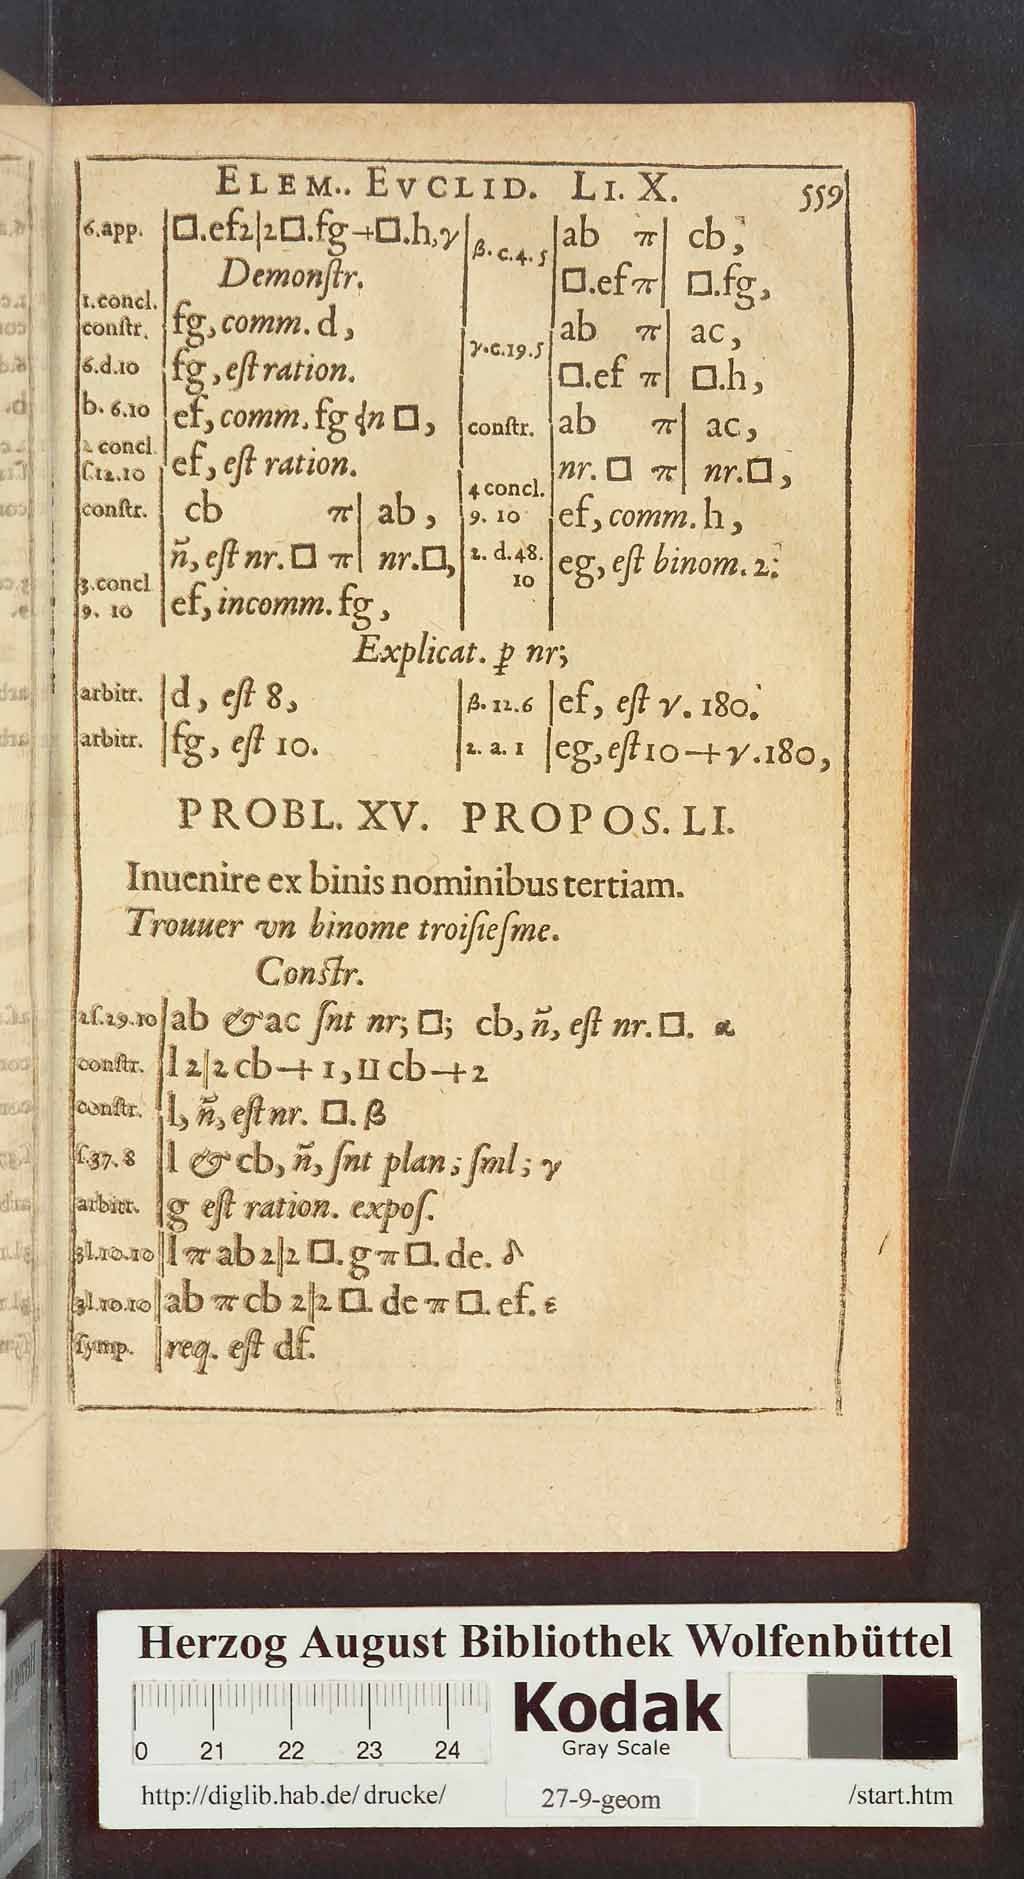 ELEM.. EVCLID. LI. X. 559
6.app. □.ef2|2□.fg+□.h,γ
Demonſtr.
1.concl.
conſtr. fg, comm. d,
6.d.10 fg, eſt ration.
b. 6.10 ef, comm. fg ɖn □,
2 concl.
ſ.12.10 ef, eſt ration.
conſtr. cb π| ab,
ñ, eſt nr.□ π| nr.□,
3.concl
9. 10 ef, incomm. fg,
β. c.4. 5 ab π| cb,
□.ef π| □.fg,
γ.c.19.5 ab π| ac,
□.ef π| □.h,
conſtr. ab π| ac,
nr.□ π| nr.□,
4 concl.
9. 10 ef, comm. h,
2. d.48.
10 eg, eſt binom. 2.
Explicat. p̱ nr;
arbitr. d, eſt 8,
arbitr. fg, eſt 10.
β. 12.6 ef, eſt γ. 180.
2. a. 1 eg, eſt 10+γ.180,
PROBL. XV. PROPOS. LI.
Inuenire ex binis nominibus tertiam.
Trouuer vn binome troiſieſme.
Conſtr.
2ſ.29.10 ab & ac ſnt nr; □; cb, ñ, eſt nr.□. α
conſtr. l 2|2 cb+1, II cb+2
conſtr. l, ñ, eſt nr. □. β
ſ.37.8 l & cb, ñ, ſnt plan; ſml; γ
arbitr. g eſt ration. expoſ.
3l.10.10 l π ab 2|2 □.g π □. de. δ
3l.10.10 ab π cb 2|2 □. de π □. ef. ε
ſymp. req. eſt df.
Herzog August Bibliothek Wolfenbüttel
0 21 22 23 24
Kodak
Gray Scale
http://diglib.hab.de/drucke/ 27-9-geom /start.htm